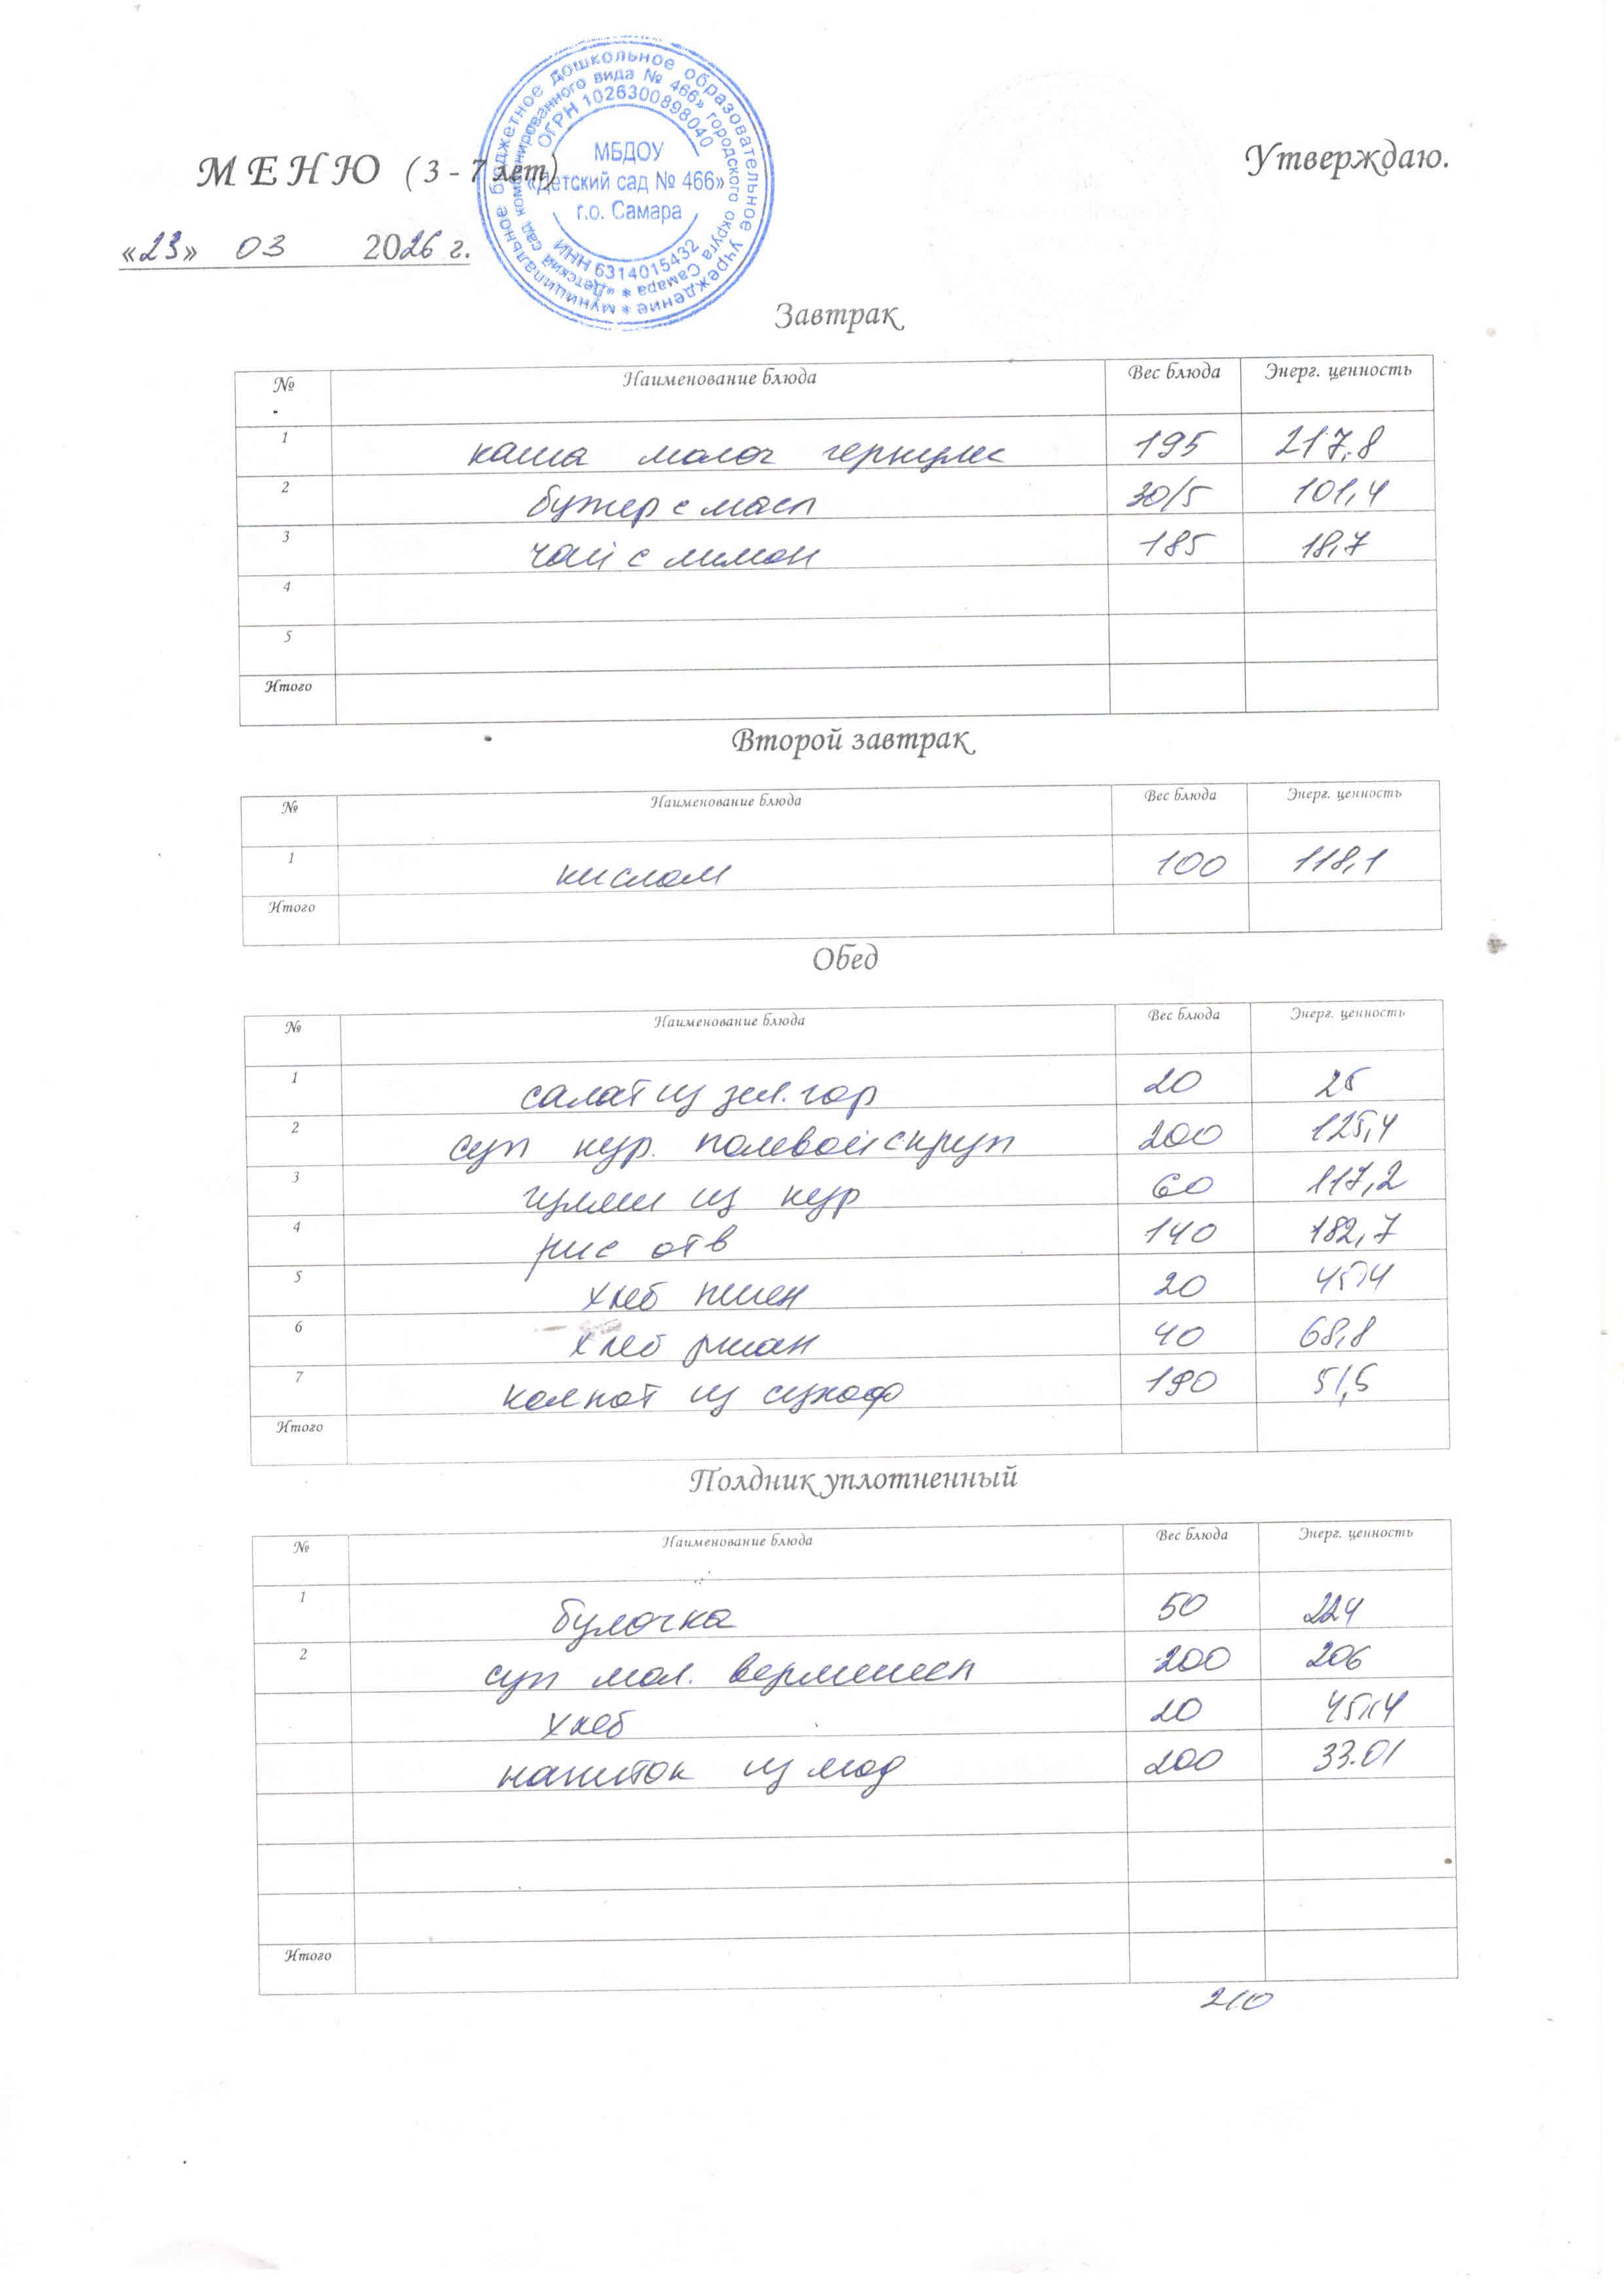 МЕНЮ (3 - 7 лет)
Утверждаю.
«23» 03 2026 г.
муниципальное бюджетное дошкольное образовательное учреждение
«Детский сад комбинированного вида № 466» городского округа Самара
ОГРН 1026300898040
МБДОУ
«Детский сад № 466»
г.о. Самара
ИНН 6314015432
Завтрак
№ Наименование блюда Вес блюда Энерг. ценность
1 каша молоч геркулес 195 217,8
2 бутер с масл 30/5 101,4
3 чай с лимон 185 18,7
4
5
Итого
Второй завтрак
№ Наименование блюда Вес блюда Энерг. ценность
1 кислом 100 118,1
Итого
Обед
№ Наименование блюда Вес блюда Энерг. ценность
1 салат из зел. гор 20 25
2 суп кур. полевой с круп 200 125,4
3 из кур 60 117,2
4 рис отв 140 182,7
5 хлеб пшен 20
6 хлеб ржан 40 68,8
7 компот из сухоф 190 51,5
Итого
Полдник уплотненный
№ Наименование блюда Вес блюда Энерг. ценность
1 булочка 50 224
2 суп мол. вермишел 200 206
хлеб 20 45,4
напиток из 200 33.01
Итого
210